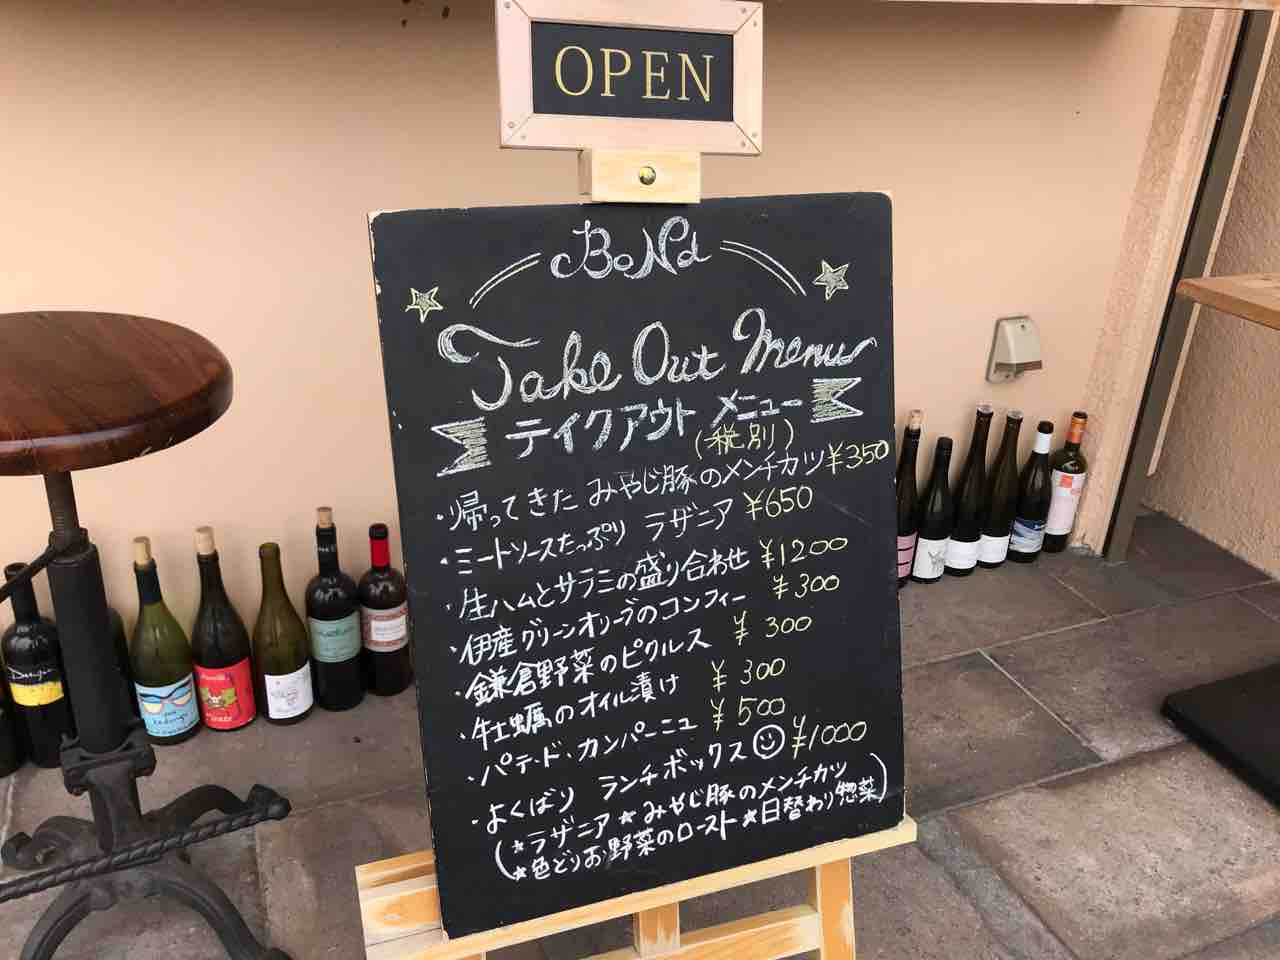 OPEN
BoNd
Take Out Menu
テイクアウト メニュー
(税別)
・帰ってきた みやじ豚のメンチカツ ¥350
・ミートソースたっぷり ラザニア ¥650
・生ハムとサラミの盛り合わせ ¥1200
・伊産グリーンオリーブのコンフィー ¥300
・鎌倉野菜のピクルス ¥300
・牡蠣のオイル漬け ¥300
・パテ・ド・カンパーニュ ¥500
・よくばり ランチボックス ¥1000
(★ラザニア★みやじ豚のメンチカツ
★色どりお野菜のロースト★日替わり惣菜)